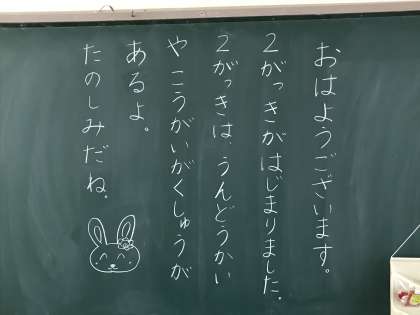 おはようございます。
2がっきがはじまりました。
2がっきは、うんどうかい
やこうがいがくしゅうが
あるよ。
たのしみだね。